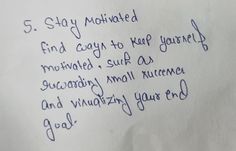 5. Stay Motivated
Find ways to keep yourself
motivated, such as
rewarding small successes
and visualizing your end
goal.